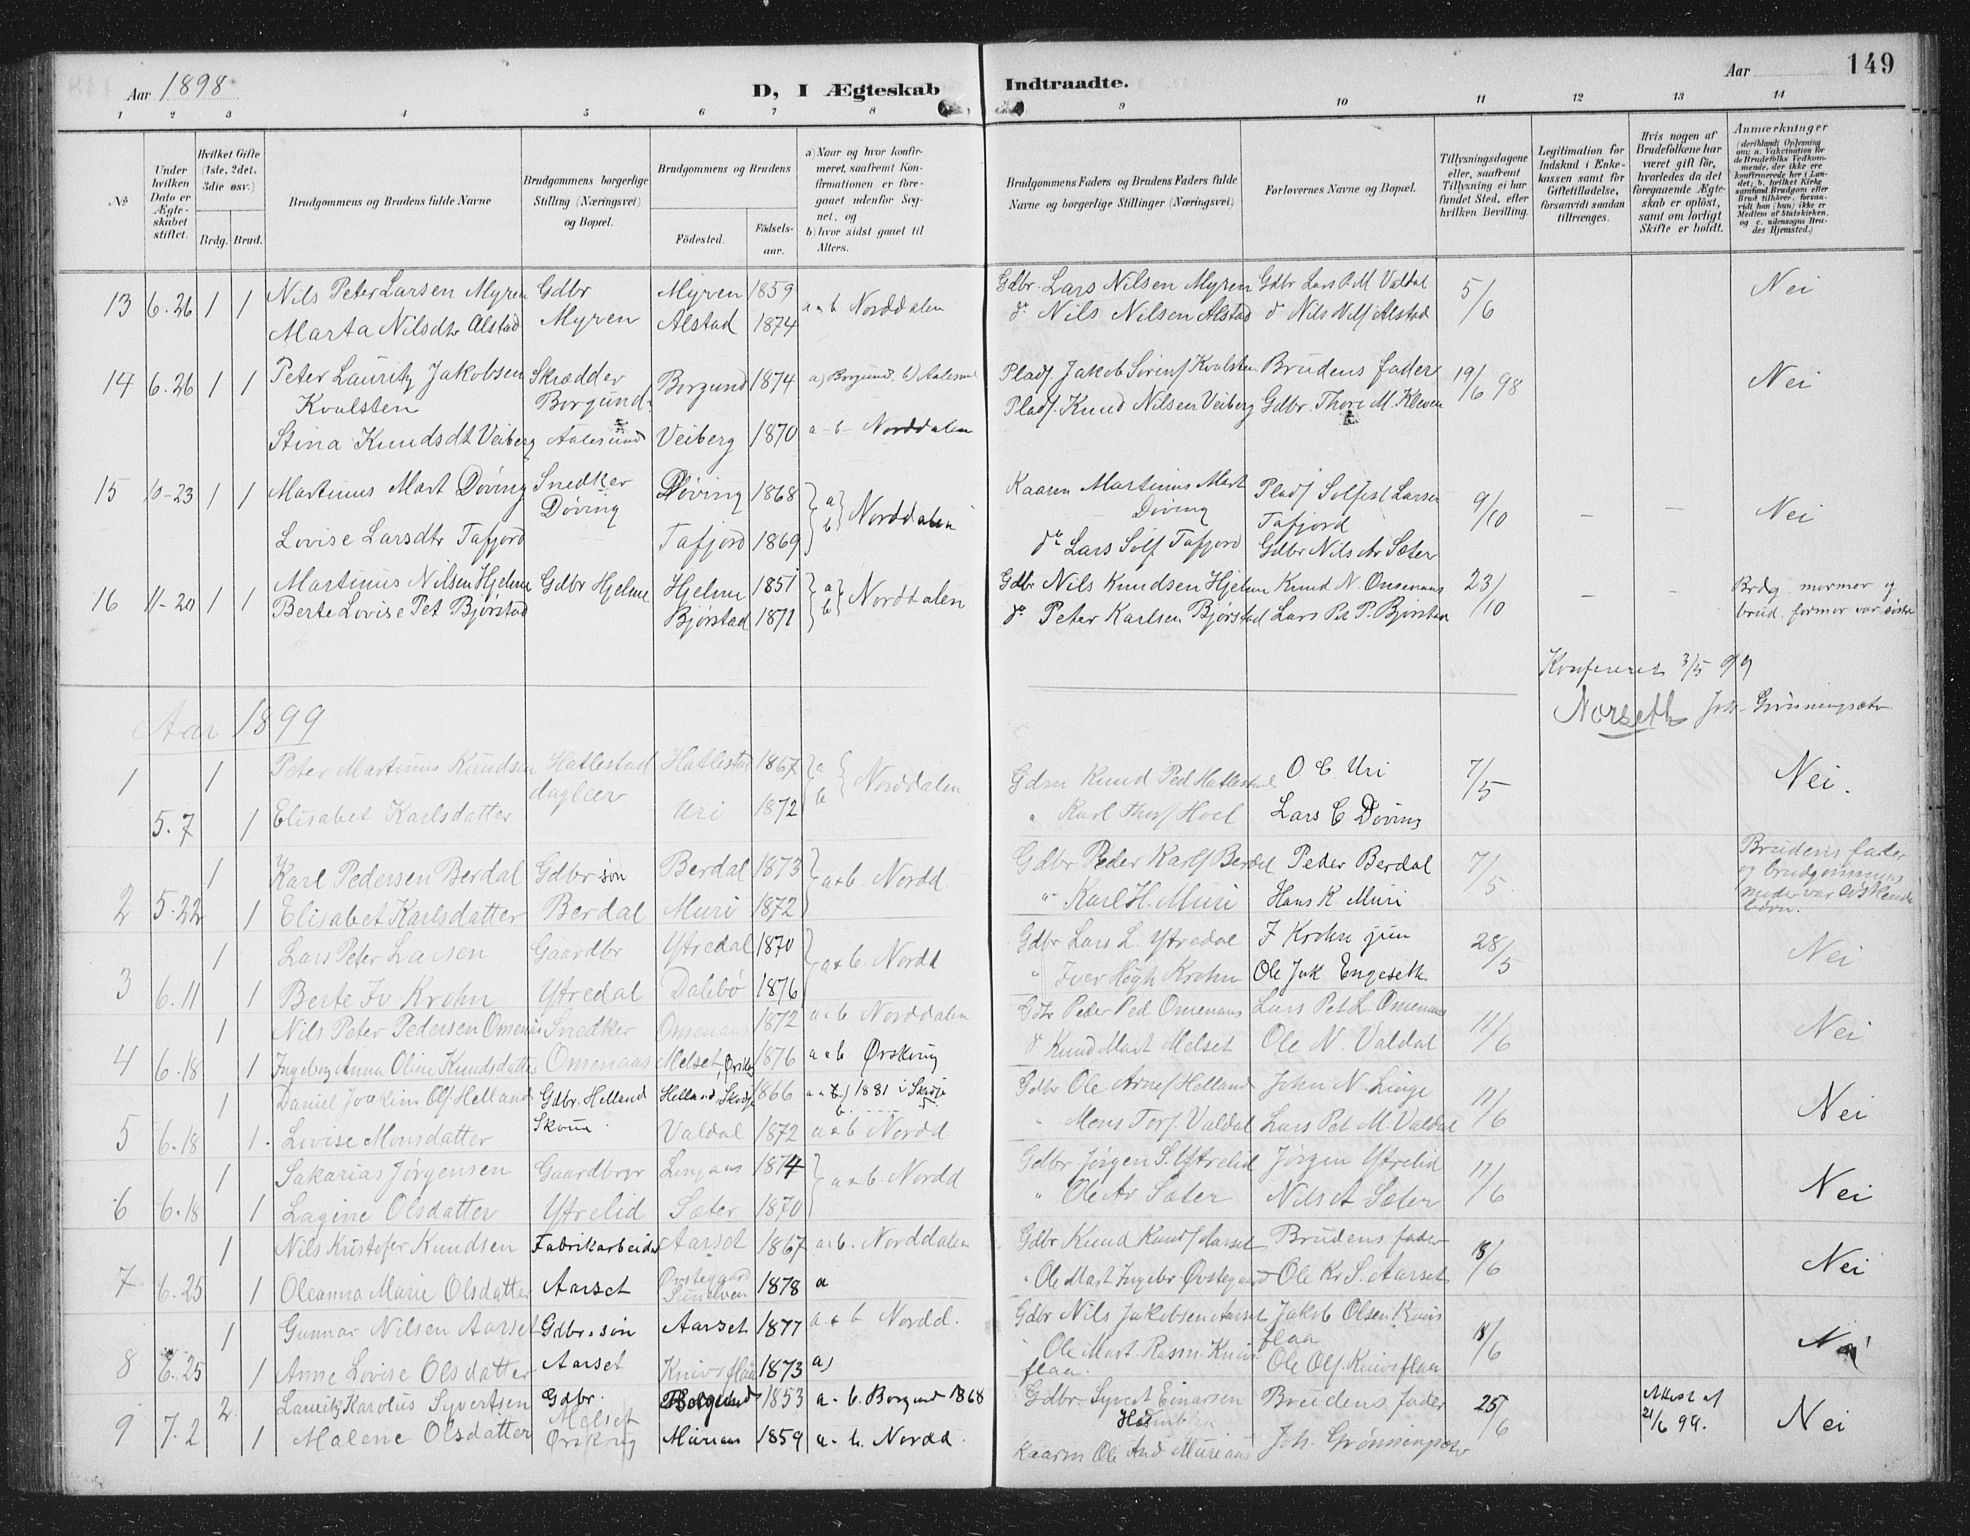 Aar 1898
D, I Ægteskab
Indtraadte.
Aar
149
1 2 3 4 5 6 7 8 9 10 11 12 13 14
No
Under hvilken Dato er Ægteskabet stiftet.
Hvilket Gifte (1ste, 2det, 3die osv.)
Brdg. Brud.
Brudgommens og Brudens fulde Navne
Brudgommens borgerlige Stilling (Næringsvei) og Bopæl.
Brudgommens og Brudens
Födested.
Födselsaar.
a) Naar og hvor konfirmeret, saafremt Konfirmationen er foregaaet udenfor Sognet, og
b) hvor sidst gaaet til Alters.
Brudgommens Faders og Brudens Faders fulde Navne og borgerlige Stillinger (Næringsvei)
Forlovernes Navne og Bopæl.
Tillysningsdagene eller, saafremt Tillysning ei har fundet Sted, efter hvilken Bevilling.
Legitimation for Indskud i Enkekassen samt for Giftetilladelse, forsaavidt saadan tiltrænges.
Hvis nogen af Brudefolkene har været gift för, hvorledes da det foregaaende Ægteskab er oplöst, samt om lovligt Skifte er holdt.
Anmærkninger
(deriblandt Oplysning om: a. Vakcination for de Brudefolks Vedkommende, der ikke ere konfirmerede her i Landet; b. hvilket Kirkesamfund Brudgom eller Brud tilhörer, forsaavidt han (hun) ikke er Medlem af Statskirken, og c. udensogns Brudes Hjemsted.)
13 6.26 1 1 Nils Peter Larsen Myren Gdbr Myren 1859 a-b Norddalen Gdbr. Lars Nilsen Myren Gdbr Lars P M Valdal 5/6 Nei
Marta Nilsdtr Alstad Myren Alstad 1874 do Nils Nilsen Alstad d Nils Nilss Alstad
14 6.26 1 1 Peter Lauritz Jakobsen Skrædder Borgund 1874 a) Borgund, b) Aalesund Pladf Jakob Sörens Kvalsten Brudens fader 19/6 98 Nei
Kvalsten Borgund Pladf. Knud Nilsen Veiberg Gdbr. Thore M. Kleven
Stina Knudsdt Veiberg Aalesund Veiberg 1870 a-b- Norddalen
15 10-23 1 1 Martinus Mart Döving Snedker Döving 1868 a b Norddalen Kaarm Martinus Mart Pladf Solfest Larsen 9/10 - - Nei
Döving Döving Tafjord
Lovise Larsdtr Tafjord Tafjord 1869 do Lars Solf Tafjord Gdbr Nils Ar Sæter
16 11-20 1 1 Martinus Nilsen Hjelme Gdbr Hjelme Hjelme 1851 a b Norddalen Gdbr Nils Knudsen Hjelm Knud N. Omenaas 23/10 - - Brdg. mormor og
Berte Lovise Pet Bjørstad Bjørstad 1871 do Peter Karlsen Bjørstad Lars Pet P. Bjørstad brud. formor var
Konfereret 3/5 99
Norseth Joh. Grönningsæter
Aar 1899
1 1 Peter Martinus Knudsen Hatlestad Hatlestad 1867 a b Norddalen Gdm Knud Ped Hatlestad O E Uri 7/5 Nei.
5.7 1 Elisabet Karlsdatter dagleer Uri 1872 " Karl Thors Hoel Lars C Døving
1 Karl Pedersen Berdal Gdbr søn Berdal 1873 a+b. Nordd. Gdbr Peder Karls Berdal Peder Berdal 7/5 Brudens fader
2 5.22 1 Elisabet Karlsdatter Berdal Muri 1872 " Karl H. Muri Hans K Muri og brudgommens moder var søskende børn.
1 Lars Peter Larsen Gaardbr Ytredal 1870 a+b. Nordd Gdbr Lars L. Ytredal I Krohn jun 28/5 Nei
3 6.11 1 Berte Iv Krohn Ytredal Dalebø 1876 " Iver Høgh Krohn Ole Jak Engeseth
1 Nils Peter Pedersen Omenås Snedker Omenaas 1872 a+b Norddalen Gdbr Peder Ped Omenaas Lars Pet L. Omenaas 11/6 Nei
4 6.18 1 Ingeborg Anna Oline Knudsdatter Omenaas Melset, Ørskog 1876 a+b Ørskog d Knud Mart Melset Ole N. Valdal
1 Daniel Joakim Ols Helland Gdbr. Helland Helland, Skodje 1866 a+b 1881 i Skodje Gdbr Ole Arnes Helland John N. Linge 11/6 Nei
5 6.18 1. Lovise Monsdatter Valdal 1872 a+b Nordd. " Mons Tors. Valdal Lars Pet M. Valdal
1 Sakarias Jørgensen Gaardbrgr Lingaas 1874 a+b. Nordd Gdbr Jørgen S. Ytrelid Jørgen Ytrelid 11/6 Nei
6 6.18 1 Lagine Olsdatter Ytrelid Sæter 1870 " Ole Ar Sæter Nils et Sæter
1 Nils Kristofer Knudsen Fabrikarbeider Aarset 1867 a+b. Norddalen Gdbr Knud Knuds Aarset Brudens fader 18/6 Nei
7 6.25 1 Oleanna Marie Olsdatter Aarset Øvstegaard Sunelven 1878 a " Ole Mart Ingebr Øvstegaard Ole Kr S. Aarset
1 Gunnar Nilsen Aarset Gdbr.søn Aarset 1877 a+b Nordd. Gdbr Nils Jakobsen Aarset Jakob Olsen Knivsflaa 18/6 Nei
8 6.25 1 Anne Lovise Olsdatter Aarset Knivsflaa 1873 a) Ole Mart Rasm. Knivsflaa. Ole Ols. Knivsflaa
2. Lauritz Karolus Syvertsen Gdbr. Borgund 1853 a. b. Borgund 1868 Gdbr Syvert Einarsen Brudens fader 25/6 Attest af 21/6 99. Nei
9 7.2 1 Malene Olsdatter Melset Ørskog Murians 1859 a. b. Nordd. Kaarm Ole And Murians Joh. Grönningsæter